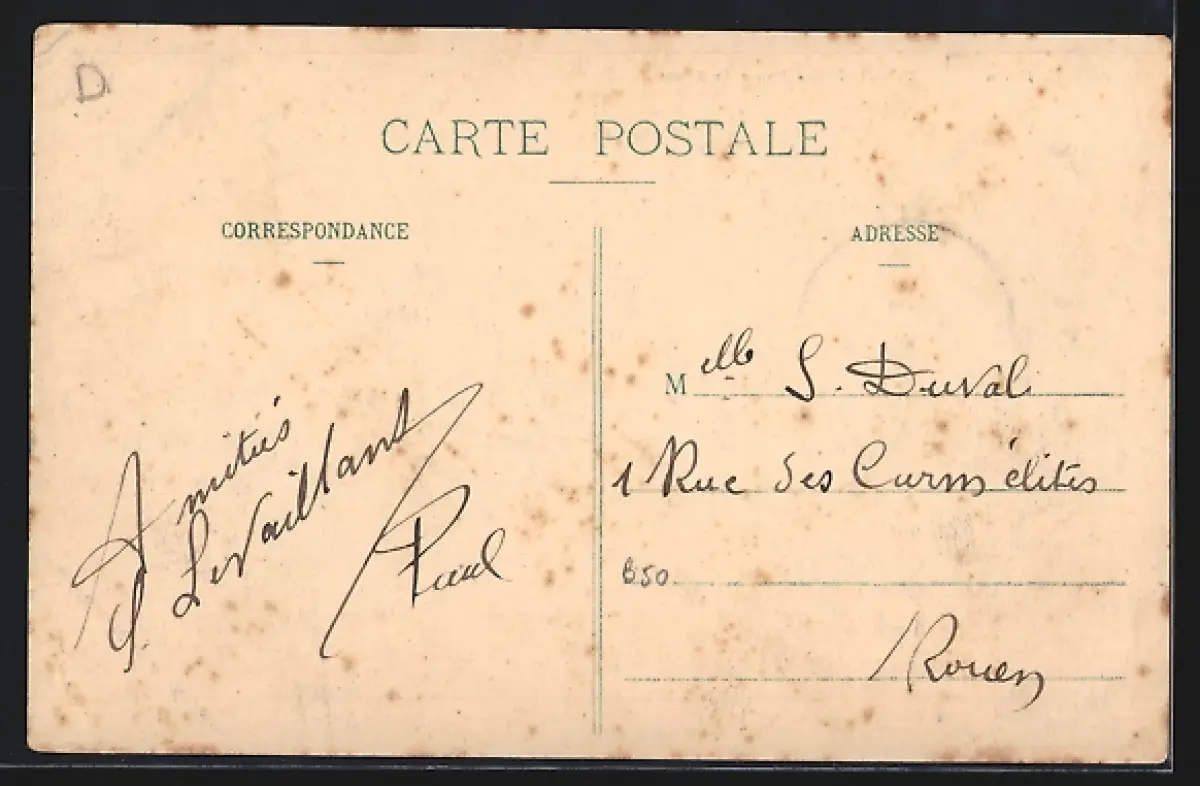 D
CARTE POSTALE
CORRESPONDANCE
Amitiés
S. Levaillant
Paul
ADRESSE
Melle S. Duval
1 Rue des Carmélites
B50
Rouen